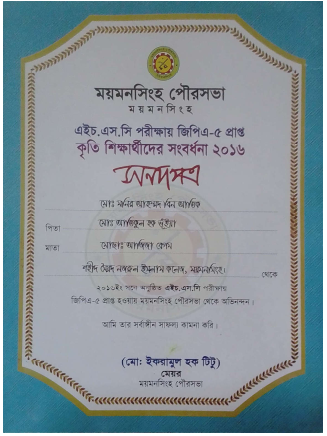 ময়মনসিংহ পৌরসভা
ময়মনসিংহ
এইচ.এস.সি পরীক্ষায় জিপিএ-৫ প্রাপ্ত
কৃতি শিক্ষার্থীদের সংবর্ধনা ২০১৬
সনদপত্র
মোঃ মনির আহম্মদ বিন আতিক
পিতা মোঃ আতিকুল হক ভূঁইয়া
মাতা মোছাঃ আম্বিয়া বেগম
শহীদ সৈয়দ নজরুল ইসলাম কলেজ, ময়মনসিংহ। থেকে
২০১৬ইং সনে অনুষ্ঠিত এইচ.এস.সি পরীক্ষায়
জিপিএ-৫ প্রাপ্ত হওয়ায় ময়মনসিংহ পৌরসভা থেকে অভিনন্দন।
আমি তার সর্বাঙ্গীন সাফল্য কামনা করি।
(মো: ইকরামুল হক টিটু)
মেয়র
ময়মনসিংহ পৌরসভা